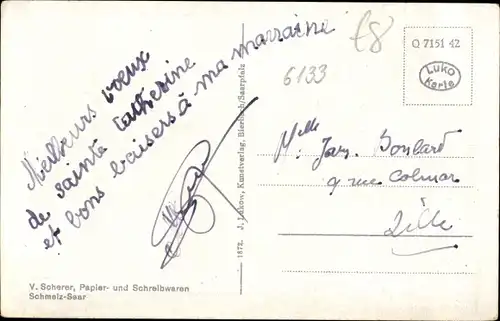 Meilleurs voeux
de Sainte Catherine
et bons baisers à ma marraine
£8
6133
Q 7151 42
Luko
Karte
Melle Boulard
9 rue Colmar
Lille
1872. J. Lukow, Kunstverlag, Bierbach/Saarpfalz
V. Scherer, Papier- und Schreibwaren
Schmelz-Saar